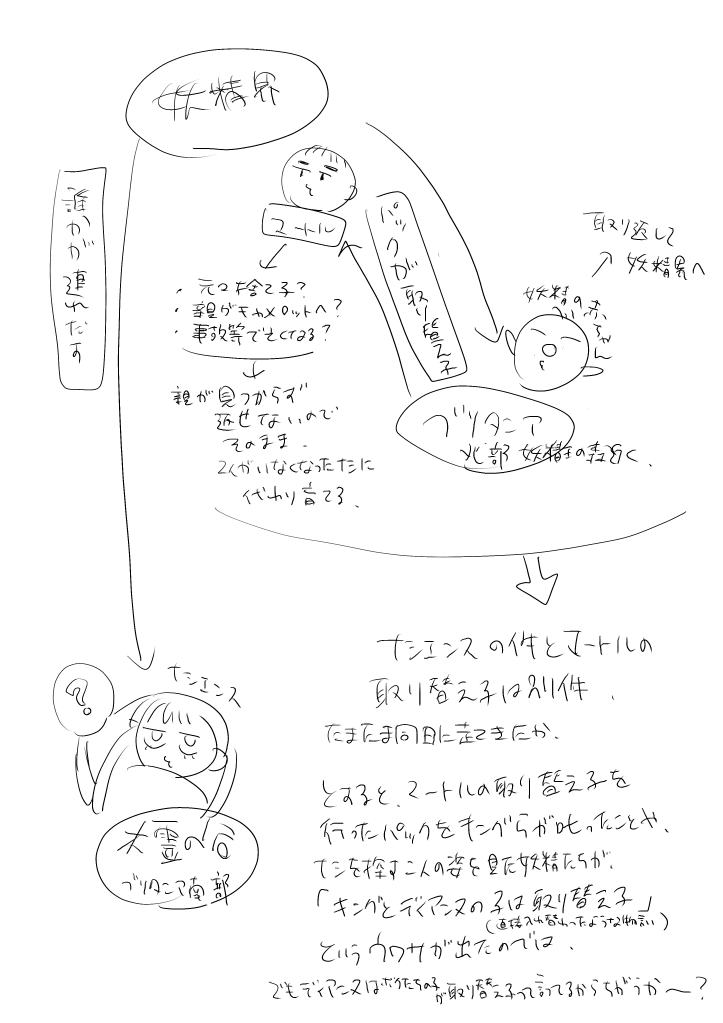 妖精界
誰かが連れだす
マートル
パックが取り替え子
取り返して
↗ 妖精界へ
妖精の赤ちゃん
・元々捨て子?
・親がキャメロットへ?
・事故等で亡くなる?
親が見つからず
返せないので
そのまま.
2人がいなくなった
代わり育てる.
ブリタニア
北部 妖精王の森近く.
ナシエンスの件とマートルの
取り替え子は別件.
たまたま同日に起きたか.
とすると、マートルの取り替え子を
行ったパックをキングらが叱ったことや、
ナシを探す二人の姿を見た妖精たちが、
「キングとディアンヌの子は取り替え子」
(直接入れ替わったような物言い)
というウワサが出たのでは.
でもディアンヌはボクたちの子が取り替え子って言ってるからちがうか〜?
?
ナシエンス
大霊の谷
ブリタニア南部